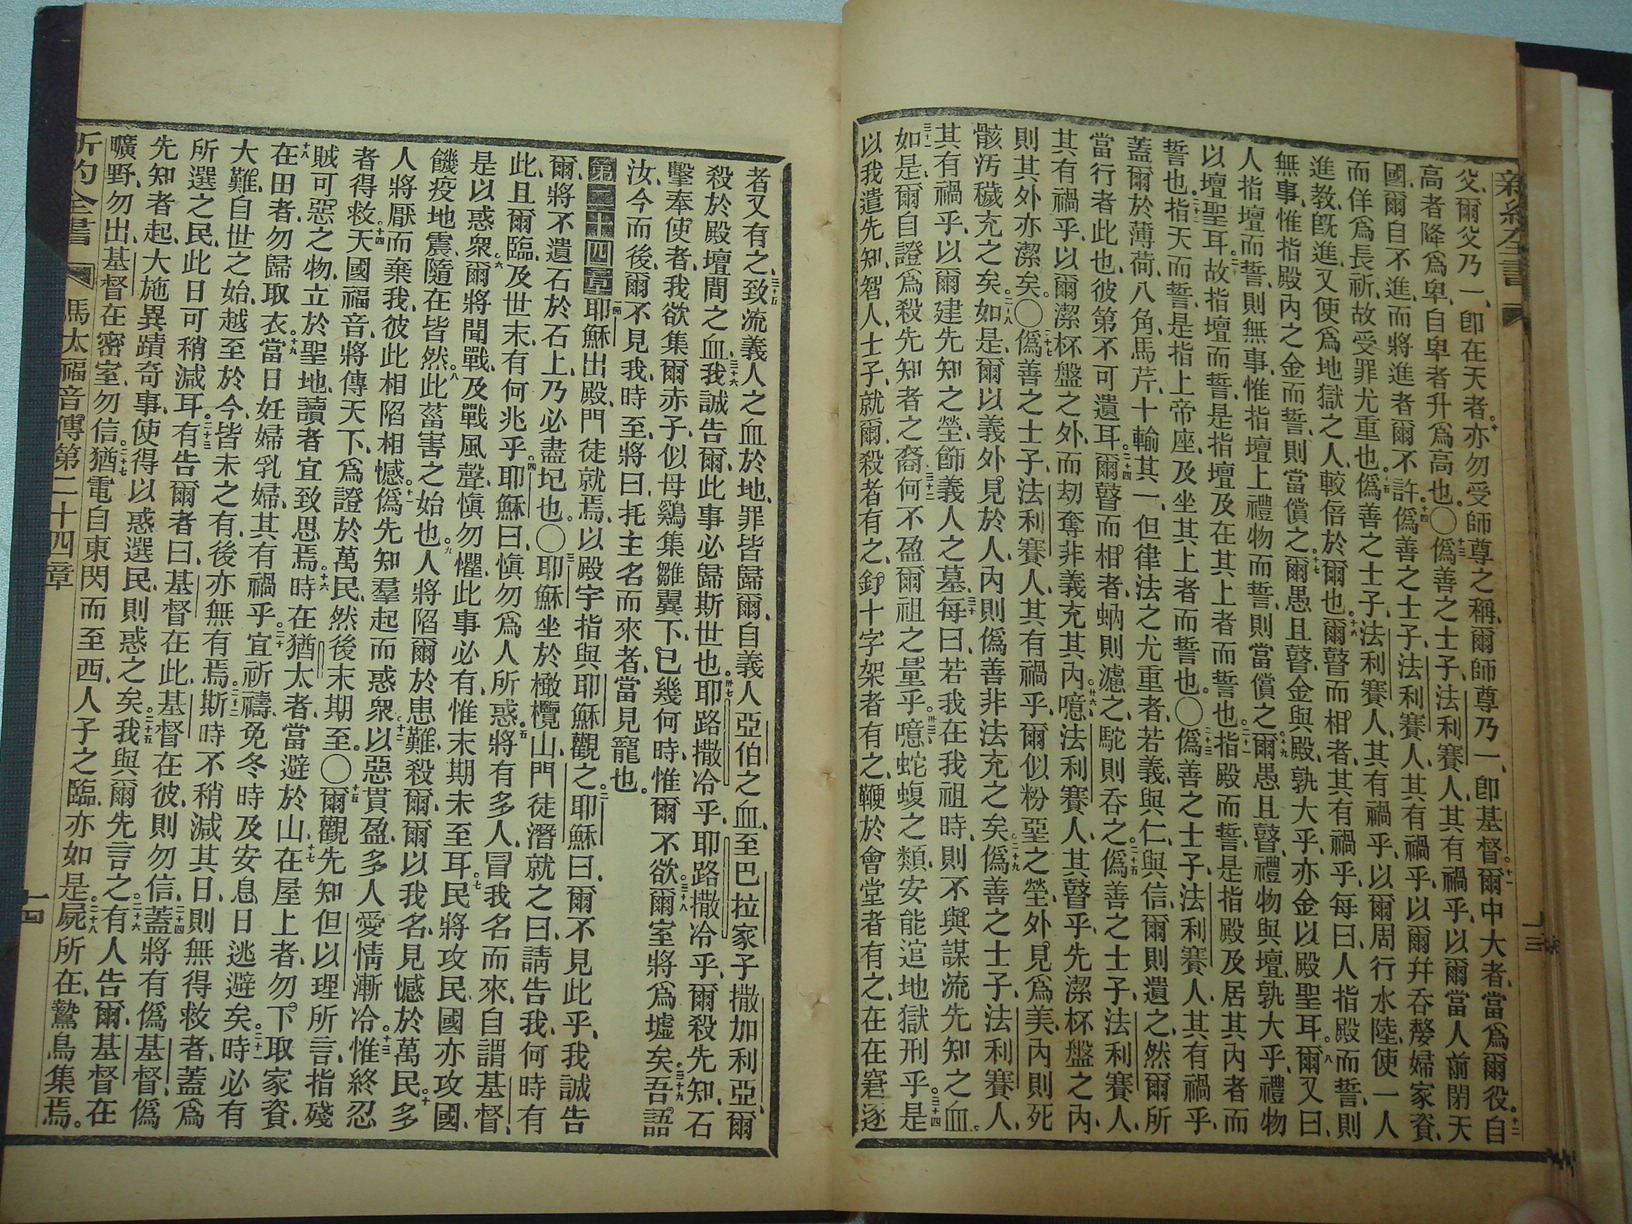 新約全書
十三
父、爾父乃一、卽在天者、亦勿受師尊之稱、爾師尊乃一、卽基督、爾中大者、當爲爾役、自
高者降爲卑、自卑者升爲高也。〇僞善之士子、法利賽人、其有禍乎、以爾當人前閉天
國、爾自不進、而將進者、爾不許、僞善之士子、法利賽人、其有禍乎、以爾幷吞嫠婦家資、
而佯爲長祈、故受罪尤重也、僞善之士子、法利賽人、其有禍乎、以爾周行水陸、使一人
進敎、旣進、又使爲地獄之人、較倍於爾也、爾瞽而相者、其有禍乎、每曰、人指殿而誓、則
無事、惟指殿內之金而誓、則當償之、爾愚且瞽、金與殿、孰大乎、亦金以殿聖耳、爾又曰、
人指壇而誓、則無事、惟指壇上禮物而誓、則當償之、爾愚且瞽、禮物與壇、孰大乎、禮物
以壇聖耳、故指壇而誓、是指壇及在其上者而誓也、指殿而誓、是指殿及居其內者而
誓也、指天而誓、是指上帝座、及坐其上者而誓也。〇僞善之士子、法利賽人、其有禍乎、
蓋爾於薄荷、八角、馬芹、十輸其一、但律法之尤重者、若義、與仁、與信、爾則遺之、然爾所
當行者此也、彼第不可遺耳、爾瞽而相者、蚋則濾之、駝則呑之、僞善之士子、法利賽人、
其有禍乎、以爾潔杯盤之外、而劫奪非義充其內、噫、法利賽人、其瞽乎、先潔杯盤之內、
則其外亦潔矣。〇僞善之士子、法利賽人、其有禍乎、爾似粉堊之塋、外見爲美、內則死
骸汚穢充之矣、如是、爾以義外見於人、內則僞善非法充之矣、僞善之士子、法利賽人、
其有禍乎、以爾建先知之塋、飾義人之墓、每曰、若我在我祖時、則不與謀流先知之血、
如是、爾自證爲殺先知者之裔、何不盈爾祖之量乎、噫、蛇蝮之類、安能逭地獄刑乎、是
以我遣先知、智人、士子、就爾、殺者有之、釘十字架者有之、鞭於會堂者有之、在在窘逐
者又有之、致流義人之血於地、罪皆歸爾、自義人亞伯之血、至巴拉家子撒加利亞、爾
殺於殿壇間之血、我誠告爾、此事必歸斯世也、耶路撒冷乎、耶路撒冷乎、爾殺先知、石
擊奉使者、我欲集爾赤子、似母鷄集雛翼下、已幾何時、惟爾不欲、爾室將爲墟矣、吾語
汝、今而後、爾不見我、時至將曰、托主名而來者、當見寵也。
第二十四章 耶穌出殿、門徒就焉、以殿宇指與耶穌觀之、耶穌曰、爾不見此乎、我誠告
爾、將不遺石於石上、乃必盡圮也。〇耶穌坐於橄欖山、門徒潛就之曰、請告我、何時有
此、且爾臨、及世末、有何兆乎、耶穌曰、愼勿爲人所惑、將有多人、冒我名而來、自謂基督、
是以惑衆、爾將聞戰、及戰風聲、愼勿懼、此事必有、惟末期未至耳、民將攻民、國亦攻國、
饑疫地震、隨在皆然、此菑害之始也、人將陷爾於患難、殺爾、爾以我名、見憾於萬民、多
人將厭而棄我、彼此相陷相憾、僞先知羣起而惑衆、以惡貫盈、多人愛情漸冷、惟終忍
者得救、天國福音、將傳天下、爲證於萬民、然後末期至。〇爾觀先知但以理所言、指殘
賊可惡之物、立於聖地、讀者宜致思焉、時在猶太者、當避於山、在屋上者勿下、取家資、
在田者、勿歸取衣、當日妊婦乳婦、其有禍乎、宜祈禱、免冬時及安息日逃避矣、時必有
大難、自世之始、越至於今、皆未之有、後亦無有焉、斯時不稍減其日、則無得救者、蓋爲
所選之民、此日可稍減耳、有告爾者曰、基督在此、基督在彼、則勿信、蓋將有僞基督、僞
先知者起、大施異蹟奇事、使得以惑選民、則惑之矣、我與爾先言之、有人告爾、基督在
曠野、勿出、基督在密室、勿信、猶電自東閃而至西、人子之臨、亦如是、屍所在、鷙鳥集焉。
新約全書 馬太福音傳第二十四章 十四